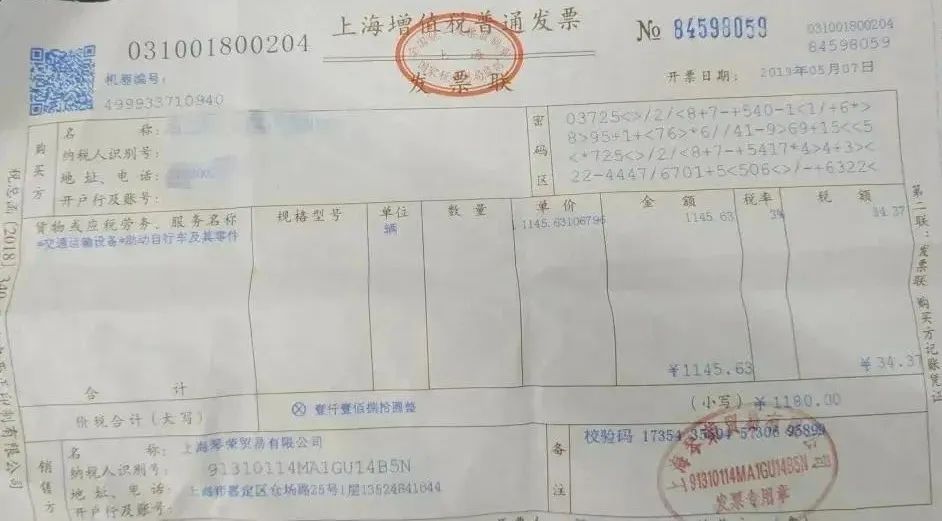 031001800204
上海增值税普通发票
发票联
№ 84598059
031001800204
84598059
机器编号:
499933710940
开票日期: 2019年05月07日
购买方
名称:
纳税人识别号:
地址、电话:
开户行及账号:
密码区
03725<>/2/<8+7-+540-1<1/+6*>
8>95+1+<76>*6//41-9>69+15<<5
<*725<>/2/<8+7-+5417*4>4+3><
22-4447/6701+5<506<>/-+6322<
货物或应税劳务、服务名称 规格型号 单位 数量 单价 金额 税率 税额
*交通运输设备*助动自行车及其零件 辆 1145.63106796 1145.63 3% 34.37
合计 ¥1145.63 ¥34.37
价税合计(大写) ⊗ 壹仟壹佰捌拾圆整 (小写) ¥1180.00
销售方
名称: 上海琴荣贸易有限公司
纳税人识别号: 91310114MA1GU14B5N
地址、电话: 上海市嘉定区仓场路25号1层13524841644
开户行及账号:
备注
校验码 17354 57306 95899
91310114MA1GU14B5N
发票专用章
第二联:发票联 购买方记账凭证
税总函〔2018〕
有限公司